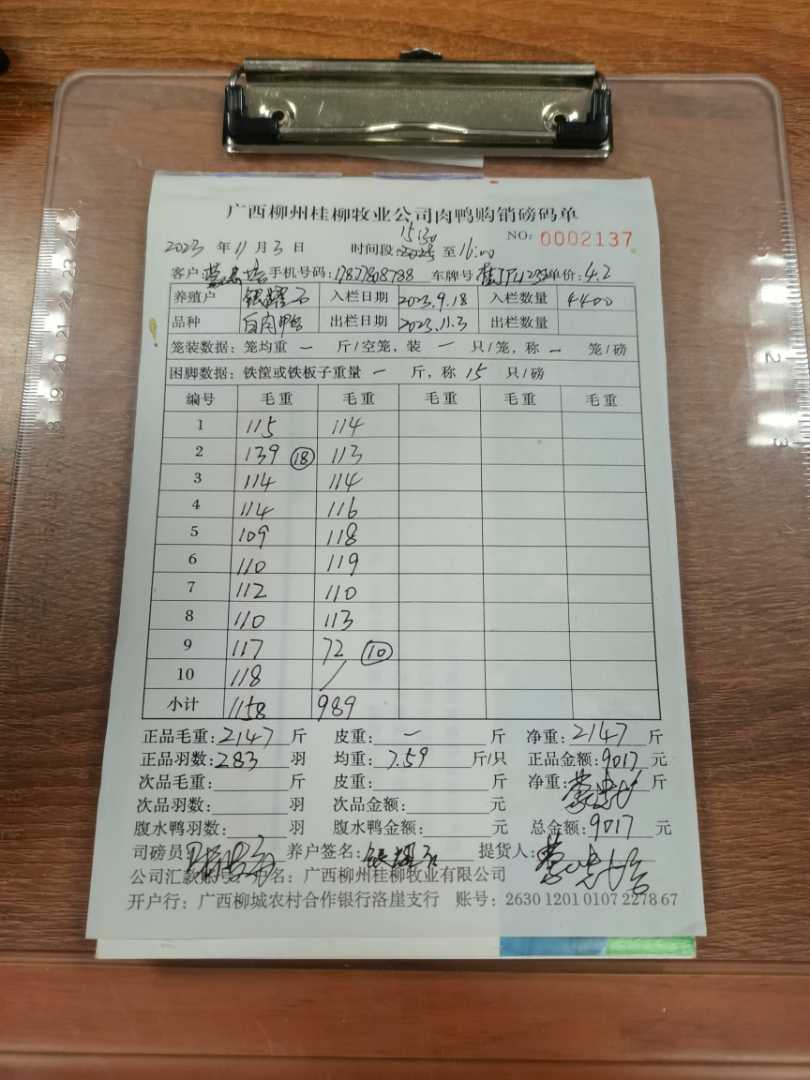 广西柳州桂柳牧业公司肉鸭购销磅码单
NO: 0002137
2023年11月3日 时间段: 15:30 至 16:00
客户: 手机号码: 17877808788 车牌号: 单价: 4.2
养殖户 银耀石 入栏日期 2023.9.18 入栏数量 4400
品种 白肉鸭 出栏日期 2023.11.3 出栏数量
笼装数据: 笼均重 一 斤/空笼, 装 一 只/笼, 称 一 笼/磅
困脚数据: 铁筐或铁板子重量 一 斤, 称 15 只/磅
编号 毛重 毛重 毛重 毛重 毛重
1 115 114
2 139 ⑱ 113
3 114 114
4 114 116
5 109 118
6 110 119
7 112 110
8 110 113
9 117 72 ⑩
10 118 /
小计 1158 989
正品毛重: 2147 斤 皮重: 一 斤 净重: 2147 斤
正品羽数: 283 羽 均重: 7.59 斤/只 正品金额: 9017 元
次品毛重: 斤 皮重: 斤 净重: 斤
次品羽数: 羽 次品金额: 元
腹水鸭羽数: 羽 腹水鸭金额: 元 总金额: 9017 元
司磅员 养户签名: 银耀石 提货人:
公司汇款 名: 广西柳州桂柳牧业有限公司
开户行: 广西柳城农村合作银行洛崖支行 账号: 2630 1201 0107 2278 67